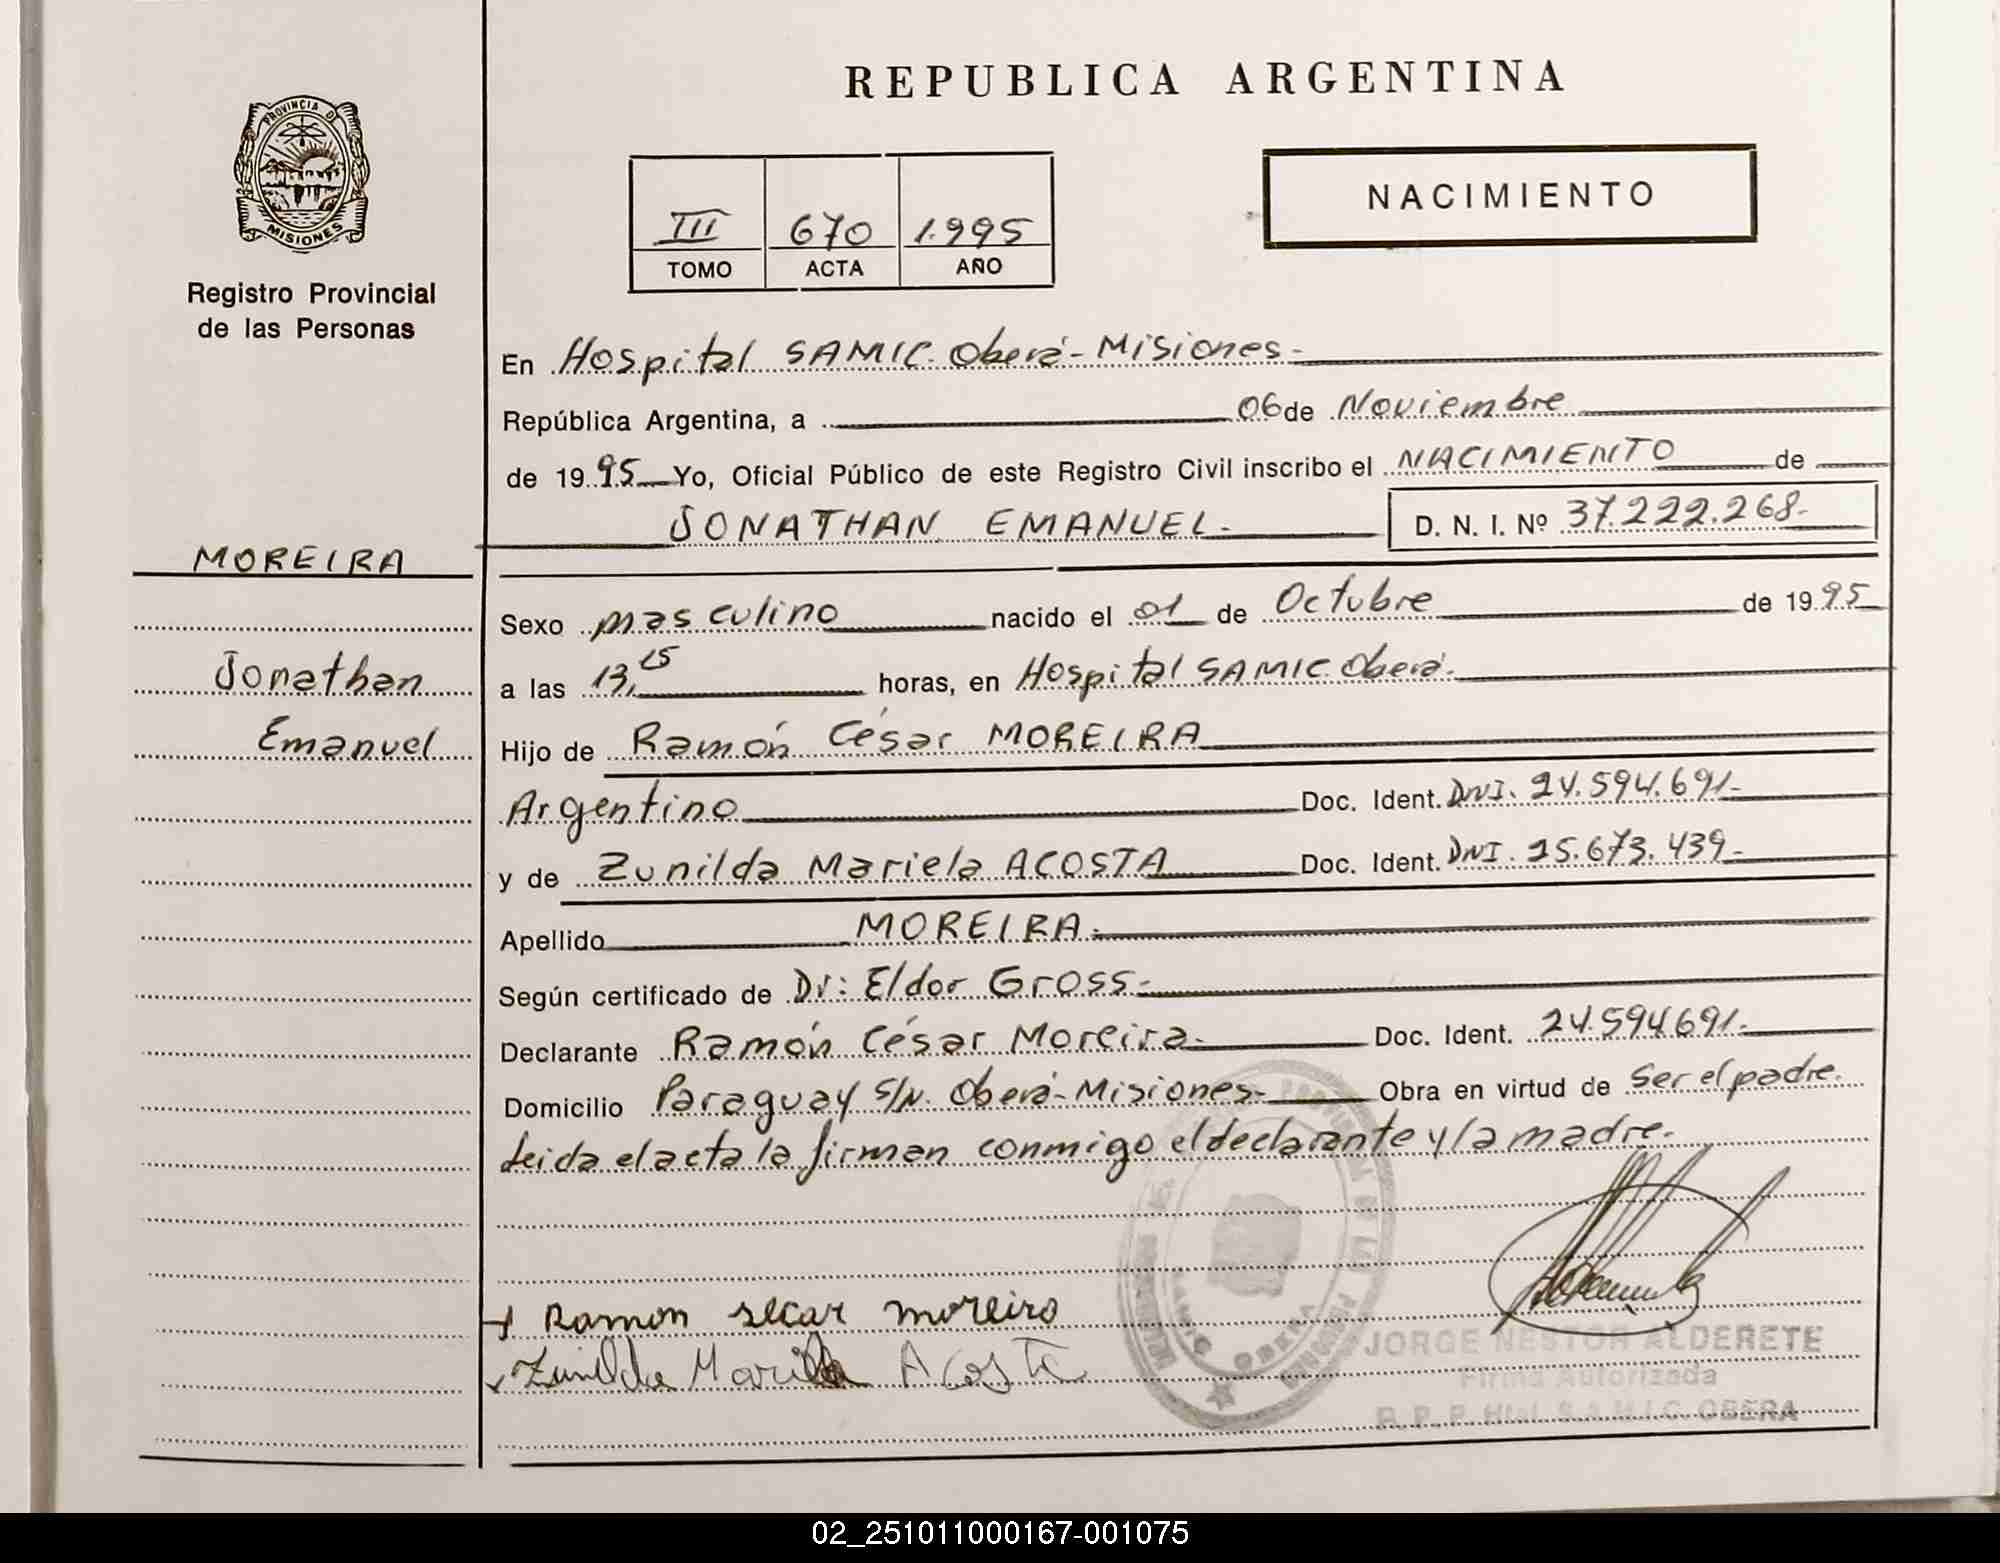 REPUBLICA ARGENTINA
PROVINCIA DE
MISIONES
Registro Provincial
de las Personas
III 670 1.995
TOMO ACTA AÑO
NACIMIENTO
En Hospital SAMIC. Oberá - Misiones -
República Argentina, a 06 de Noviembre
de 19 95 Yo, Oficial Público de este Registro Civil inscribo el NACIMIENTO de
JONATHAN EMANUEL.- D. N. I. Nº 37.222.268-
MOREIRA
Jonathan
Emanuel
Sexo masculino nacido el 01 de Octubre de 19 95
a las 13,15 horas, en Hospital SAMIC. Oberá.
Hijo de Ramón César MOREIRA
Argentino Doc. Ident. DNI. 24.594.691.-
y de Zunilda Mariela ACOSTA Doc. Ident. DNI. 25.673.439-
Apellido MOREIRA.
Según certificado de Dr: Eldor Gross.-
Declarante Ramón César Moreira.- Doc. Ident. 24.594.691.-
Domicilio Paraguay S/N. Oberá - Misiones- Obra en virtud de ser el padre.
Leida el acta la firman conmigo el declarante y la madre.-
Ramon secar moreira
Zunilda Mariela Acosta
JORGE NESTOR ALDERETE
Firma Autorizada
R. P. P. Htal. S.A.M.I.C. OBERA
02_251011000167-001075